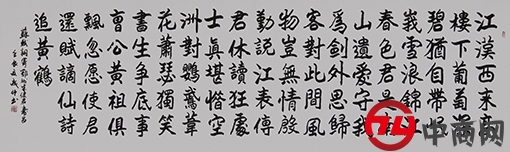 江漢西来高
樓下蒲萄深
碧猶自帶岷
峩雪浪錦江
春色君是南
山遺愛守我
為劍外思歸
客對此間風
物豈無情殷
勤說江表傳
君休讀狂處
士真堪惜空
洲對鸚鵡葦
花蕭瑟獨笑
書生爭底事
曹公黃祖俱
飄忽願使君
還賦謫仙詩
追黃鶴
蘇軾詞寄鄂州朱使君壽昌
74 中商网